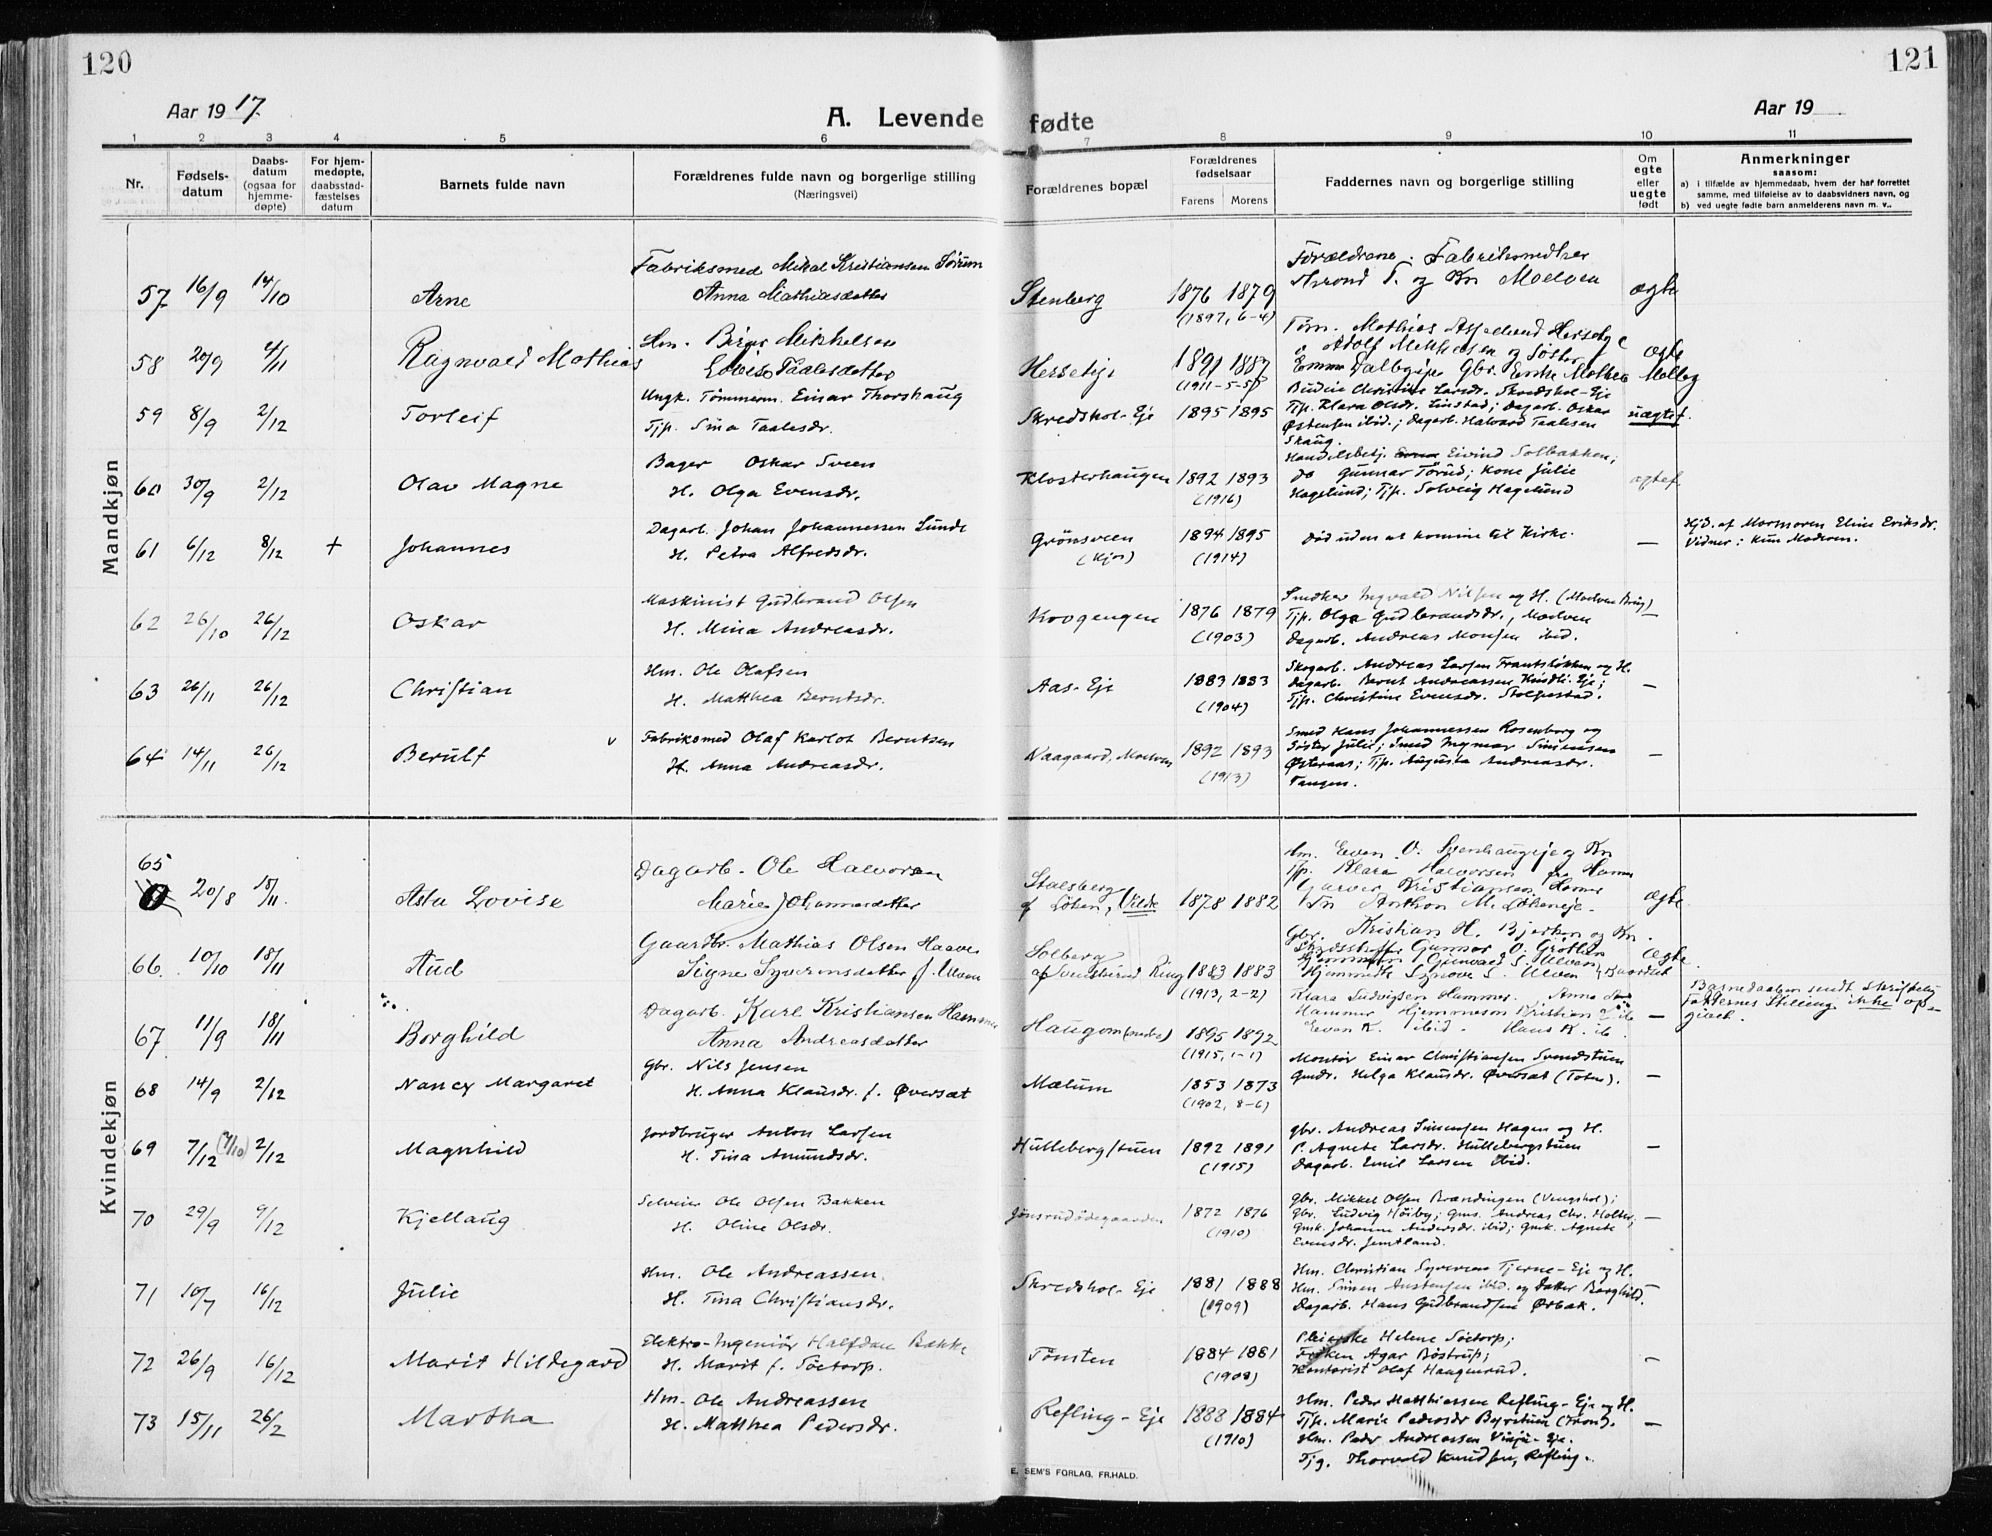 120
121
Aar 1917.
A. Levende fødte
Aar 19
1 2 3 4 5 6 7 8 9 10 11
Nr.
Fødsels-
datum
Daabs-
datum
(ogsaa for
hjemme-
døpte)
For hjem-
medøpte,
daabsstad-
fæstelses
datum
Barnets fulde navn
Forældrenes fulde navn og borgerlige stilling
(Næringsvei)
Forældrenes bopæl
Forældrenes
fødselsaar
Farens Morens
Faddernes navn og borgerlige stilling
Om
egte
eller
uegte
født
Anmerkninger
saasom:
a) i tilfælde av hjemmedaab, hvem der har forrettet
samme, med tilføielse av to daabsvidners navn, og
b) ved uegte fødte barn anmelderens navn m. v..
Mandkjøn
57 16/9 14/10 Arne
Fabriksmed Mikal Kristiansen Sörum
Anna Mathiasdatter
Stenberg 1876 1879
(1897, 6-4)
Forældrene. Fabriksmed
Trond T. og Kn Moelven
ægte
58 20/9 4/11 Ragnvald Mathias
Hm. Birger Mikkelsen
Lovise Taalesdatter
1891 1887
(1911-5-5)
59 8/9 2/12 Torleif
Ungk. Tömmerm. Einar Thorshaug
Tjp. Sina Taalesdr.
Skredshol-Eje 1895 1895
Budeie Christine Larsdr. Skredshol-Eje
Tjp. Klara Olsdr. Linstad; Dagarb. Oskar
Østensen ibid.; Dagarb. Halvard Taalesen
Skaug.
uægtef.
60 30/9 2/12 Olav Magne
Bager Oskar Sveen
H. Olga Evensdr.
Klosterhaugen 1892 1893
(1916)
Handelsbetj. Eivind Solbakken;
do Gunnar Törud; Kone Julie
Hagelund; Tjp. Solveig Hagelund
egtef
61 6/12 8/12 + Johannes
Dagarb. Johan Johannessen Lunde
H. Petra Alfredsdr.
Grönsveen
(Kjos)
1894 1895
(1914)
Död uden at komme til Kirke.
—
Hjd. af Mormoren Eline Eriksdr.
Vidner: Kun Moderen.
62 26/10 26/12 Oskar
Maskinist Gudbrand Olsen
H. Mina Andreasdr.
Krogengen 1876 1879
(1903)
Snedker Ingvald Nilsen og H. (Moelven Brug)
Tjp. Olga Gudbrandsdr., Moelven
Dagarb. Andreas Monsen ibid.
—
63 26/11 26/12 Christian
Hm. Ole Olafsen
H. Matthea Berntsdr.
Aas-Eje 1883 1883
(1904)
Skogarb. Andreas Larsen Frantsløkken og H.
Dagarb. Bernt Andreassen Kindli-Eje;
Tjp. Christine Evensdr. Stolpestad.
—
64 14/11 26/12 Berulf
Fabriksmed Olaf Karlot Berntsen
H. Anna Andreasdr.
Naagaard, Moelven 1892 1893
(1913)
Smed Hans Johannessen Rosenborg og
Söster Julie; Smed Ingmar Simensen
Østeraas; Tjp. Augusta Andreasdr.
Tangen.
—
Kvindekjøn
65 20/8 18/11. Asta Lovise
Dagarb. Ole Halvorsen
Marie Johannesdatter
Stalsberg
af Löken, Vilde
1878 1882
Hm. Even O. Svenhaugeje og Kn
Tjp. Klara Halvorsen fra Hamar
Anthon M. Løkeneje.
ægte
66. 10/10 18/11 Aud
Gaardbr. Mathias Olsen Haave
Signe Syverinsdatter f. Ulven
Solberg
1883 1883
(1913, 2-2)
Gbr. Kristian H. Bjerken og Kn.
Gunnar O. Gröthen
Hjemmedt Synøve S. Ulven
Ægte
67 11/9 18/11 Borghild
Dagarb. Karl Kristiansen Hammer
Anna Andreasdatter
Haugom (nedre) 1895 1892
(1915, 1-1)
Klara Ludvigsen Hammer. Anna
Hammer Hjemmesøn Kristian ib
Even K. ibid. Hans K. ib.
—
Barnedaaben sendt skriftelig
Faddernes Stilling ikke op-
givet.
68 14/9 2/12 Nancy Margaret
Gbr. Nils Jensen
H. Anna Klausdr. f. Øversæt
Mælum 1853 1873
(1902, 8-6)
Montör Einar Christiansen Svendstuen
Gmdr. Helga Klausdr. Øversæt (Toten).
—
69 7/12 (7/10) 2/12 Magnhild
Jordbruger Anton Larsen
H. Tina Amundsdr.
Hullebergstuen 1892 1891
(1915)
Gbr. Andreas Simensen Hagen og H.
P. Agnete Larsdr. Hullebergstuen
Dagarb. Emil Larsen Ibid.
—
70 29/9 9/12 Kjellaug
Selveier Ole Olsen Bakken
H. Oline Olsdr.
Jönsrudödegaarden 1872 1876
(1910)
Gbr. Mikkel Olsen Brændingen (Vengshol);
Gbr. Ludvig Höiby; Gms. Andreas Chr. Holter;
Gmk. Johanne Andersdr. ibid; Gmk. Agnete
Evensdr. Jemtland.
—
71 10/7 16/12 Julie
Hm. Ole Andreassen.
H. Tina Christiansdr.
Skredshol-Eje 1881 1888
(1909)
Hm. Christian Syversen Tjerne-Eje og H.
Hm. Simen Austensen ibid. og datter Borghild.
Dagarb. Hans Gudbrandsen Ørbak.
—
72 26/9 16/12 Marit Hildegard
Elektro-Ingeniør Halfdan Bakke
H. Marit f. Sætorp.
Tönsten 1884 1881
(1908)
Pleierske Helene Sætorp;
Fröken Agar Böstrup;
Kontorist Olaf Haugerud.
—
73 15/11 26/2 Martha
Hm. Ole Andreassen
H. Matthea Pedersdr.
Refling-Eje 1888 1884
(1910)
Hm. Peder Matthiassen Refling-Eje og H.
Tjp. Marie Pedersdr Byrstuen (Tron).
Hm. Peder Andreassen Vinje-Eje.
Tjg. Thorvald Knudsen, Refling.
—
E. SEM'S FORLAG, FR.HALD.